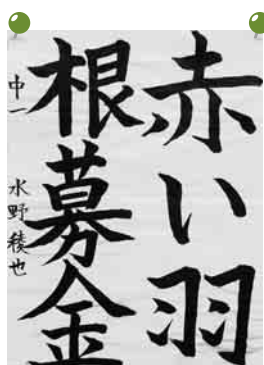 赤い羽
根募金
中一 水野稜也